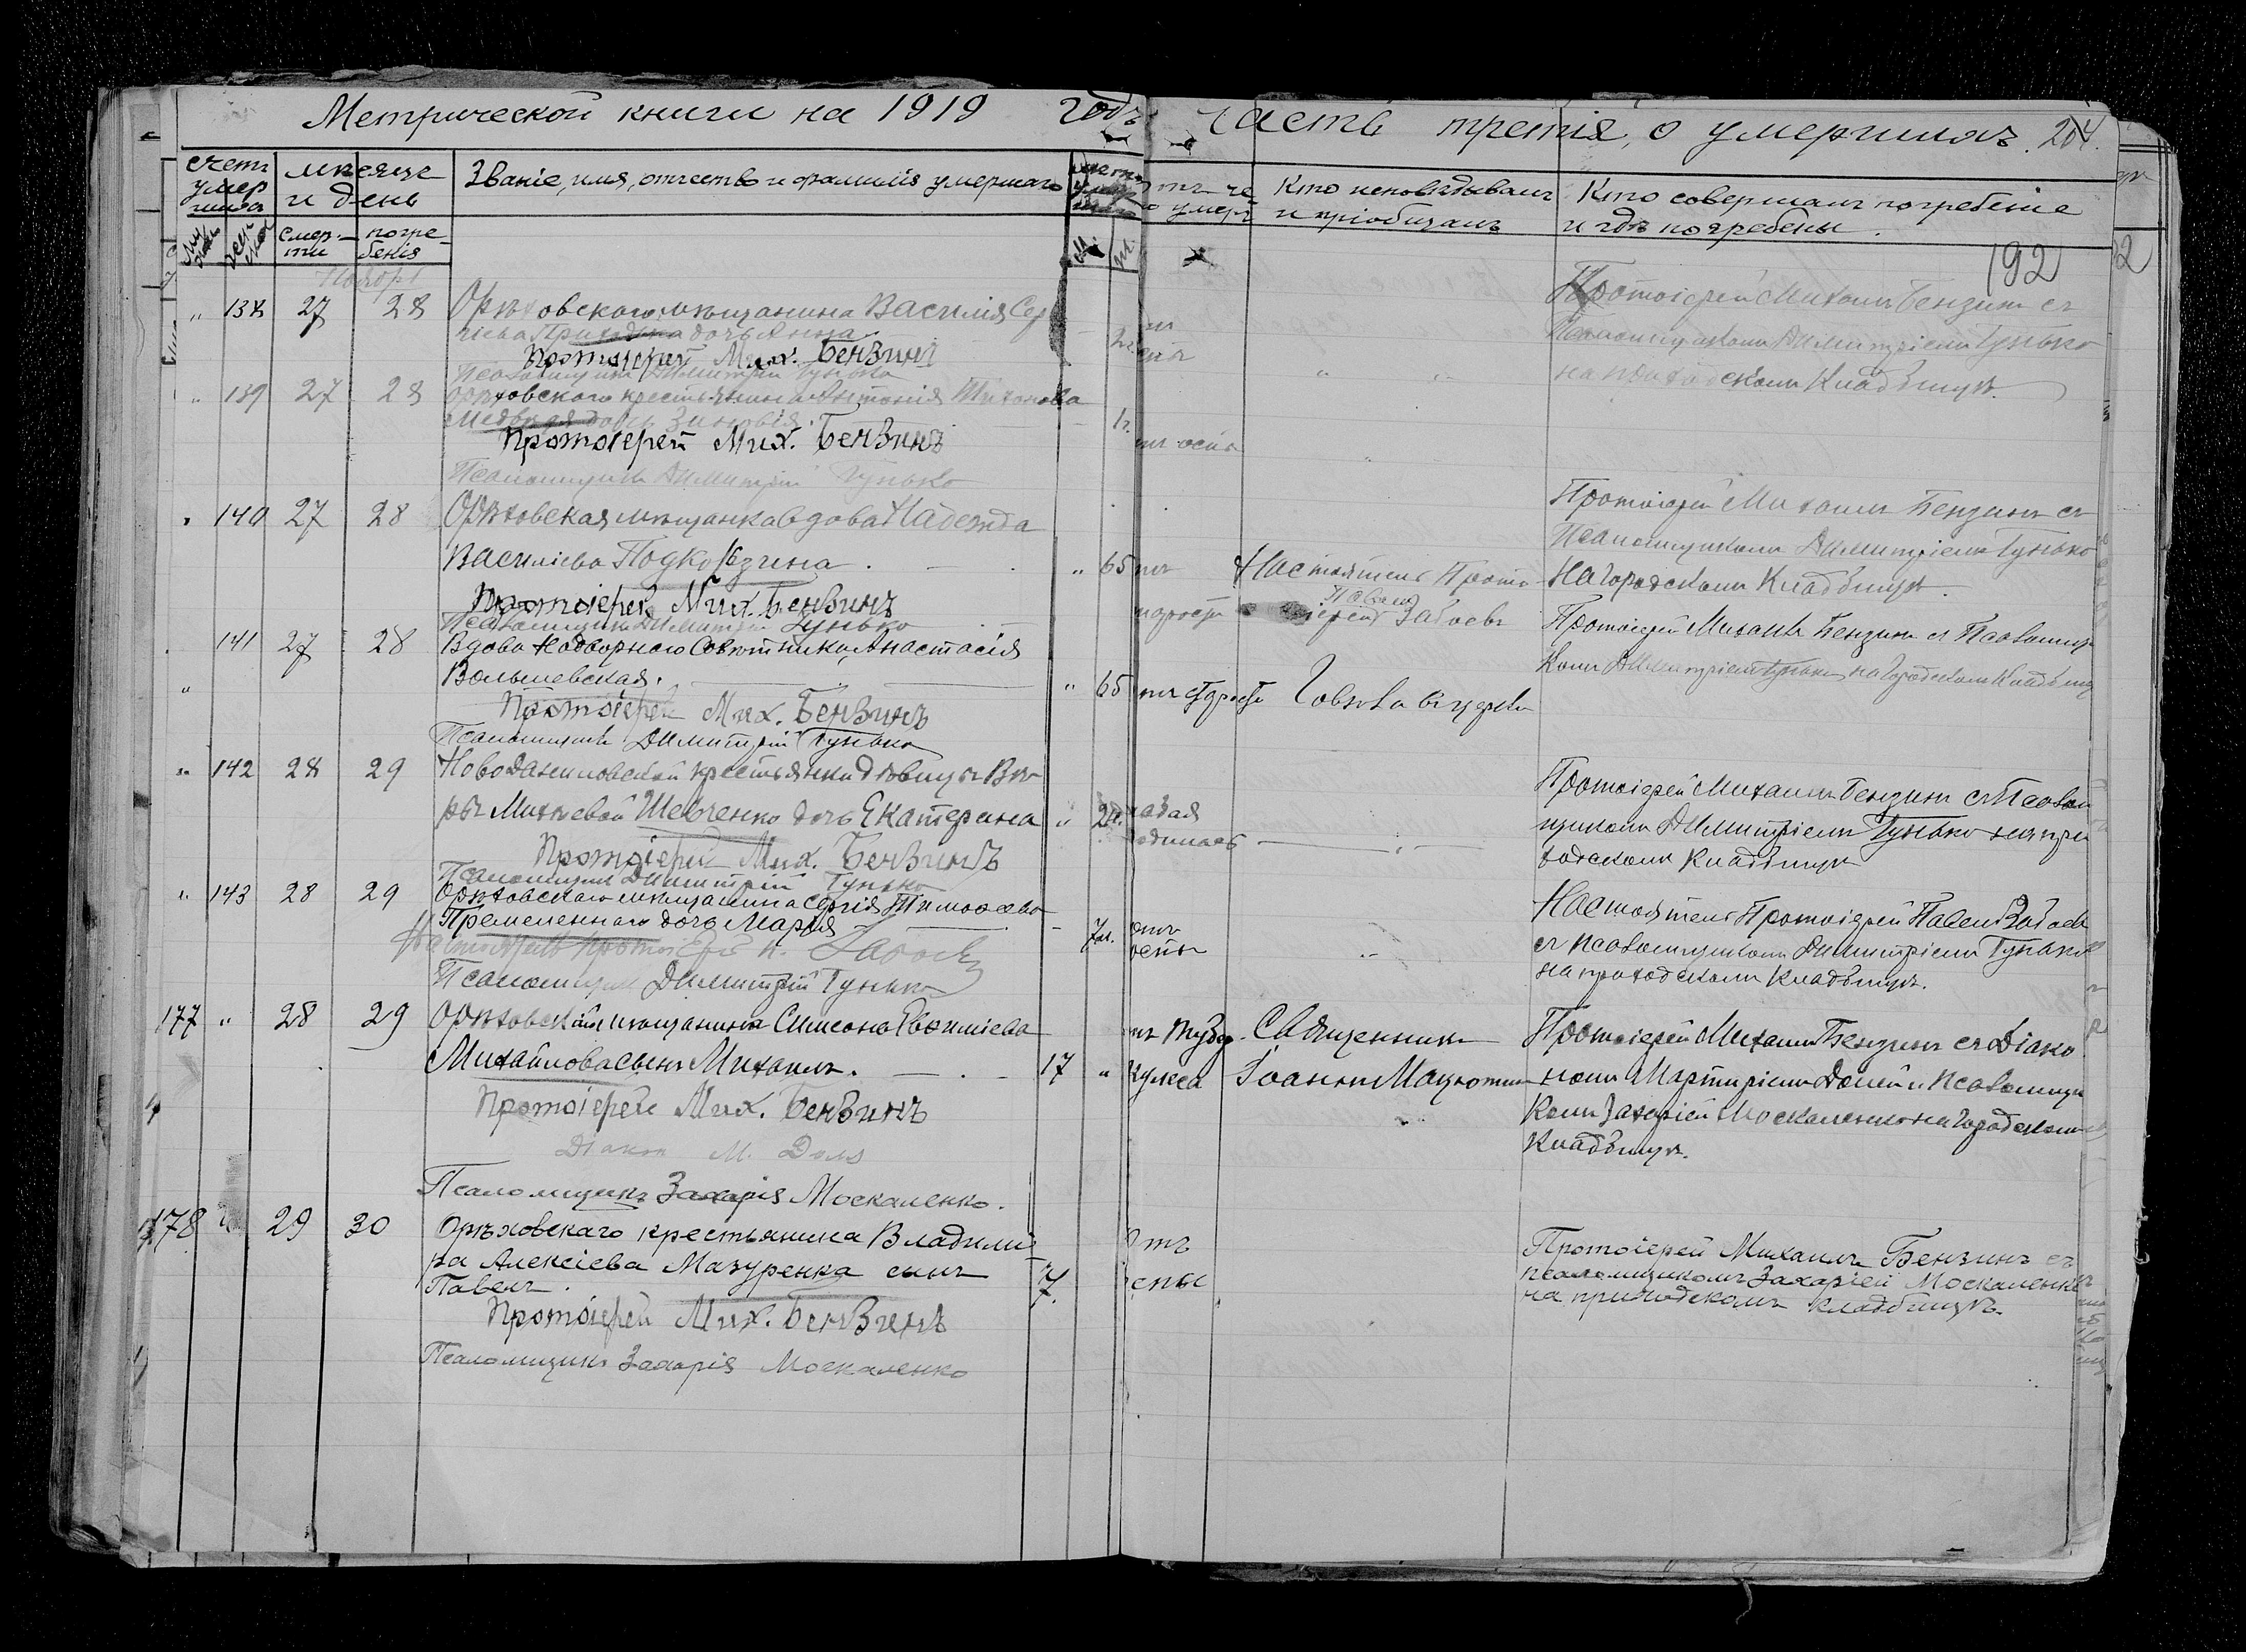 Метрической книги на 1919 годъ часть третія, о умершихъ. 204.
счетъ умершихъ
мѣсяцъ и день
Званіе, имя, отчество и фамилія умершаго
Кто исповѣдывалъ и пріобщалъ
Кто совершалъ погребеніе и гдѣ погребены.
смерти
погребенія
м.
192
" 138 27 28 Орѣховского мѣщанина Василія Сер
гіева дочь Анна
Протоіерей Мих. Бензинъ
Псаломщикъ Димитрій Гунько
Протоіерей Михаилъ Бензинъ съ
Псаломщикомъ Димитріемъ Гунько
на приходскомъ Кладбищѣ.
" 139 27 28 Орѣховского крестьянина Антонія Тихонова
дочь Зиновія 1г.
Протоіерей Мих. Бензинъ
Псаломщикъ Димитрій Гунько
140 27 28 Орѣховская мѣщанка вдова Надежда
Василіева . " 65
Протоіерей Мих. Бензинъ
Псаломщикъ Димитрій Гунько
Настоятель Прото
іерей Павелъ Забоевъ
Протоіерей Михаилъ Бензинъ съ
Псаломщикомъ Димитріемъ Гунько
На Городскомъ Кладбищѣ.
141 27 28 Вдова Надворнаго Совѣтника, Анастасія
" 65
Протоіерей Мих. Бензинъ
Псаломщикъ Димитрій Гунько
Протоіерей Михаилъ Бензинъ съ Псаломщи
комъ Димитріемъ Гунько на Городскомъ Кладбищ
" 142 28 29 Новоданиловской крестьянки дѣвицы Вѣ
ры Михеевой Шевченко дочь Екатерина "
Протоіерей Мих. Бензинъ
Псаломщикъ Димитрій Гунько
Протоіерей Михаилъ Бензинъ съ Псалом
щикомъ Димитріемъ Гунько на при
ходскомъ Кладбищѣ
" 143 28 29 Орѣховского мѣщанина Сергія Тимоѳеева
дочь Марія
Настоятель Протоіерей П. Забоевъ
Псаломщикъ Димитрій Гунько
оспы
Настоятель Протоіерей Павелъ Забоев
съ Псаломщикомъ Димитріемъ Гунько
на приходскомъ Кладбищѣ.
177 " 28 29 мѣщанина Симеона Евфиміева
Михайлова сынъ Михаилъ. 17 "
Протоіерей Мих. Бензинъ
Діаконъ М.
Псаломщикъ Захарія Москаленко.
Священникъ
Іоаннъ
Протоіерей Михаилъ Бензинъ съ Діако
номъ Мартиріемъ и Псаломщи
комъ Захаріей Москаленко на Городскомъ
Кладбищѣ.
178 29 30 Орѣховскаго крестьянина Владимі
ра Алексіева Мазуренка сынъ
Павелъ. 7
Протоіерей Мих. Бензинъ
Псаломщикъ Захарія Москаленко
Протоіерей Михаилъ Бензинъ съ
псаломщикомъ Захаріей Москаленко
на приходскомъ кладбищѣ.